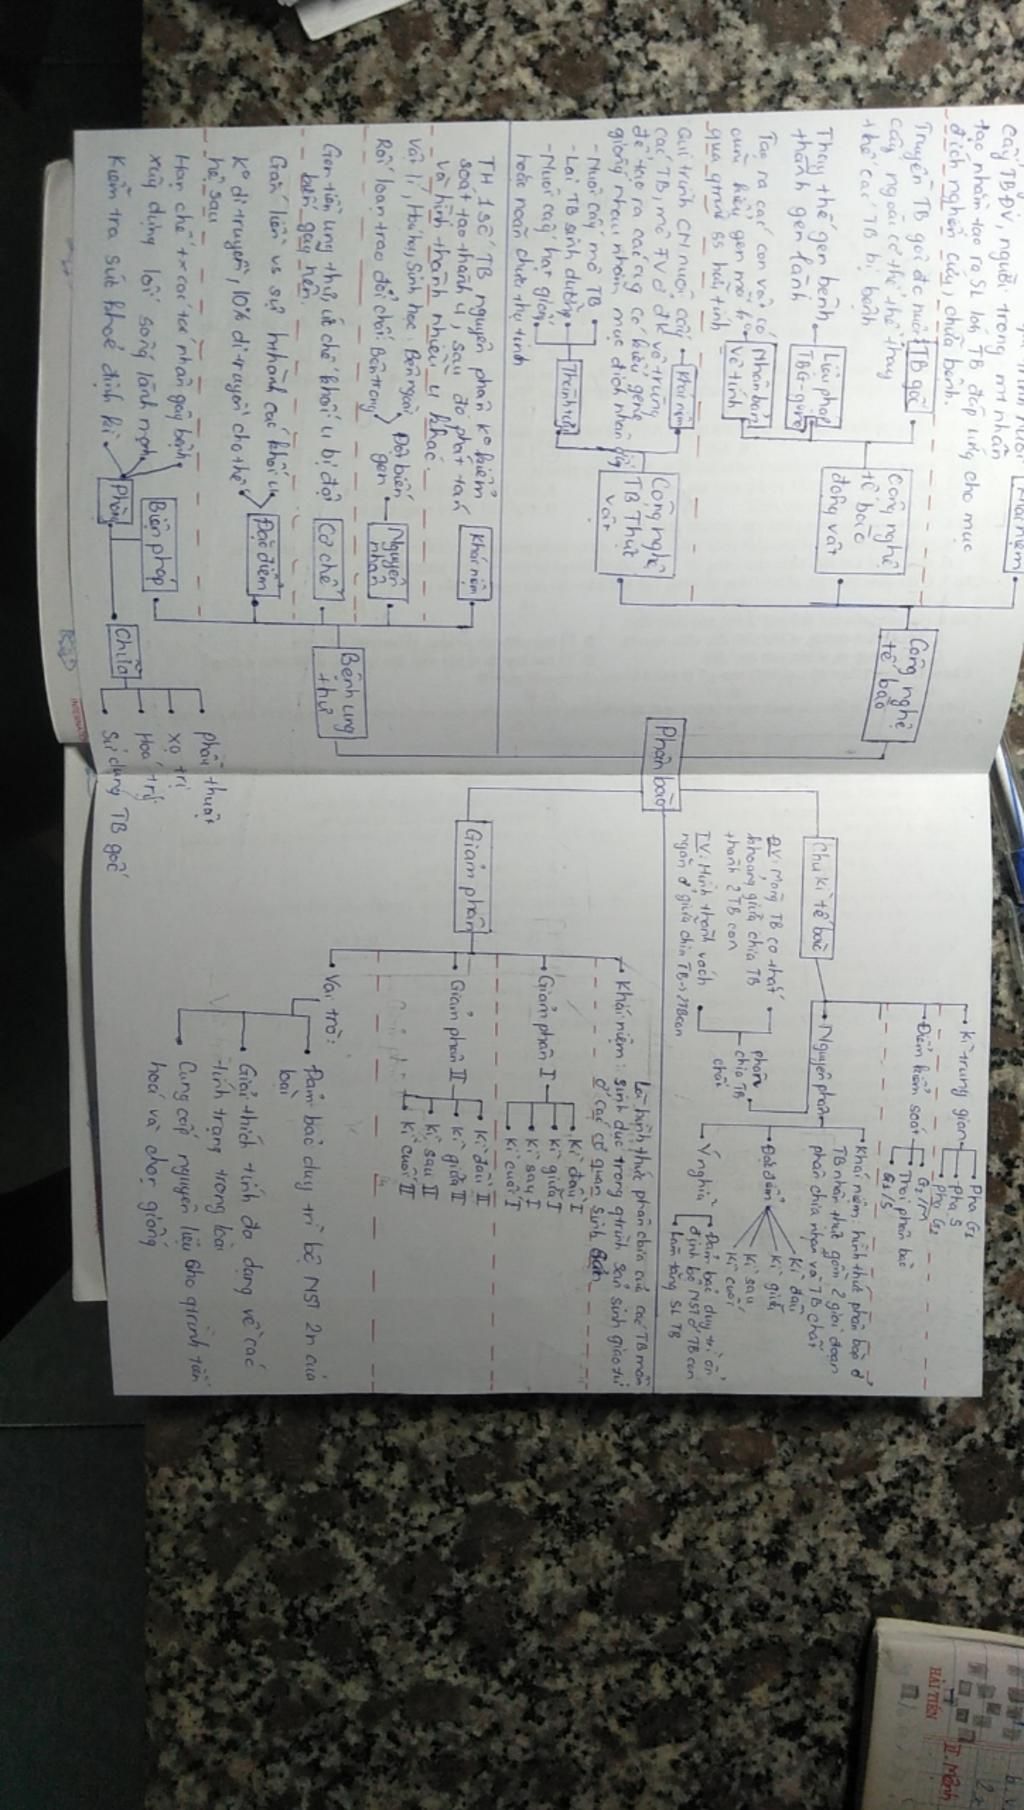 Khái niệm
cấy TBĐV, người trong mt nhân
tạo nhằm tạo ra SL lớn TB đáp ứng cho mục
đích nghiên cứu, chữa bệnh.
Truyền TB gốc đc nuôi
cấy ngoài cơ thể thay
thế các TB bị bệnh
TB gốc
Thay thế gen bệnh
thành gen lành
Liệu pháp
gen
Tạo ra các con vật có
kiểu gen
qua qtrình ss hữu tính
Nhân bản
vô tính
Công nghệ
tế bào
động vật
Công nghệ
tế bào
Qui trình CN nuôi cấy
các TB, mô TV ở đk vô trùng
để tạo ra các cây có kiểu gen
giống nhau nhằm mục đích nhân giống
Khái niệm
- Nuôi cấy mô TB
- Lai TB sinh dưỡng
- Nuôi cấy hạt phấn
hoặc noãn chưa thụ tinh
Thành tựu
Công nghệ
TB Thực
vật
TH 1 số TB nguyên phân ko kiểm
soát tạo thành u, sau đó phát tán
và hình thành nhiều u khác
Khái niệm
Vật lí, Hoá học, Sinh học: Bên ngoài
Rối loạn trao đổi chất: Bên trong
Đột biến
gen
Nguyên
nhân
Gen tiền ung thư, ức chế khối u bị đột
biến gây nên
Cơ chế
Gắn liền vs sự hthành các khối u
Ko di truyền, 10% di truyền cho thế
hệ sau
Đặc điểm
Hạn chế t.x các tác nhân gây bệnh
xây dựng lối sống lành mạnh
Kiểm tra sức khoẻ định kì
Phòng
Biện pháp
Chữa
phẫu thuật
xạ trị
Hoá trị
Sử dụng TB gốc
Bệnh ung
thư
Phân bào
Chu kì tế bào
Kì trung gian
Pha G1
Pha S
Pha G2
Điểm kiểm soát
G1/S
G2/M
Thoi phân bào
Nguyên phân
Khái niệm: hình thức phân bào ở
TB nhân thực gồm 2 giai đoạn
phân chia nhân và TB chất
Đặc điểm
Kì đầu
Kì giữa
Kì sau
Kì cuối
Ý nghĩa
Đảm bảo duy trì ổn
định bộ NST ở TB con
Làm tăng SL TB
phân
chia TB
chất
ĐV: Màng TB co thắt
khoảng giữa chia TB
thành 2 TB con
TV: Hình thành vách
ngăn ở giữa chia TB → 2TB con
Giảm phân
Là hình thức phân chia của các TB mầm
Khái niệm: sinh dục trong qtrình sản sinh giao tử
ở các cơ quan sinh sản
Giảm phân I
Kì đầu I
Kì giữa I
Kì sau I
Kì cuối I
Giảm phân II
Kì đầu II
Kì giữa II
Kì sau II
Kì cuối II
Vai trò:
Đảm bảo duy trì bộ NST 2n của
loài
Giải thích tính đa dạng về các
tính trạng trong loài
Cung cấp nguyên liệu cho qtrình tiến
hoá và chọn giống
INTERNATIO
HẢI TIẾN
II. Mệnh